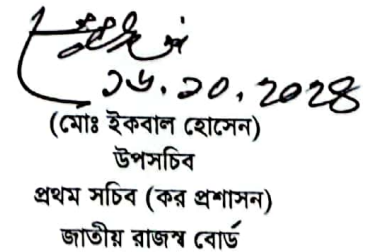 ১৬.১০.২০২৪
(মোঃ ইকবাল হোসেন)
উপসচিব
প্রথম সচিব (কর প্রশাসন)
জাতীয় রাজস্ব বোর্ড